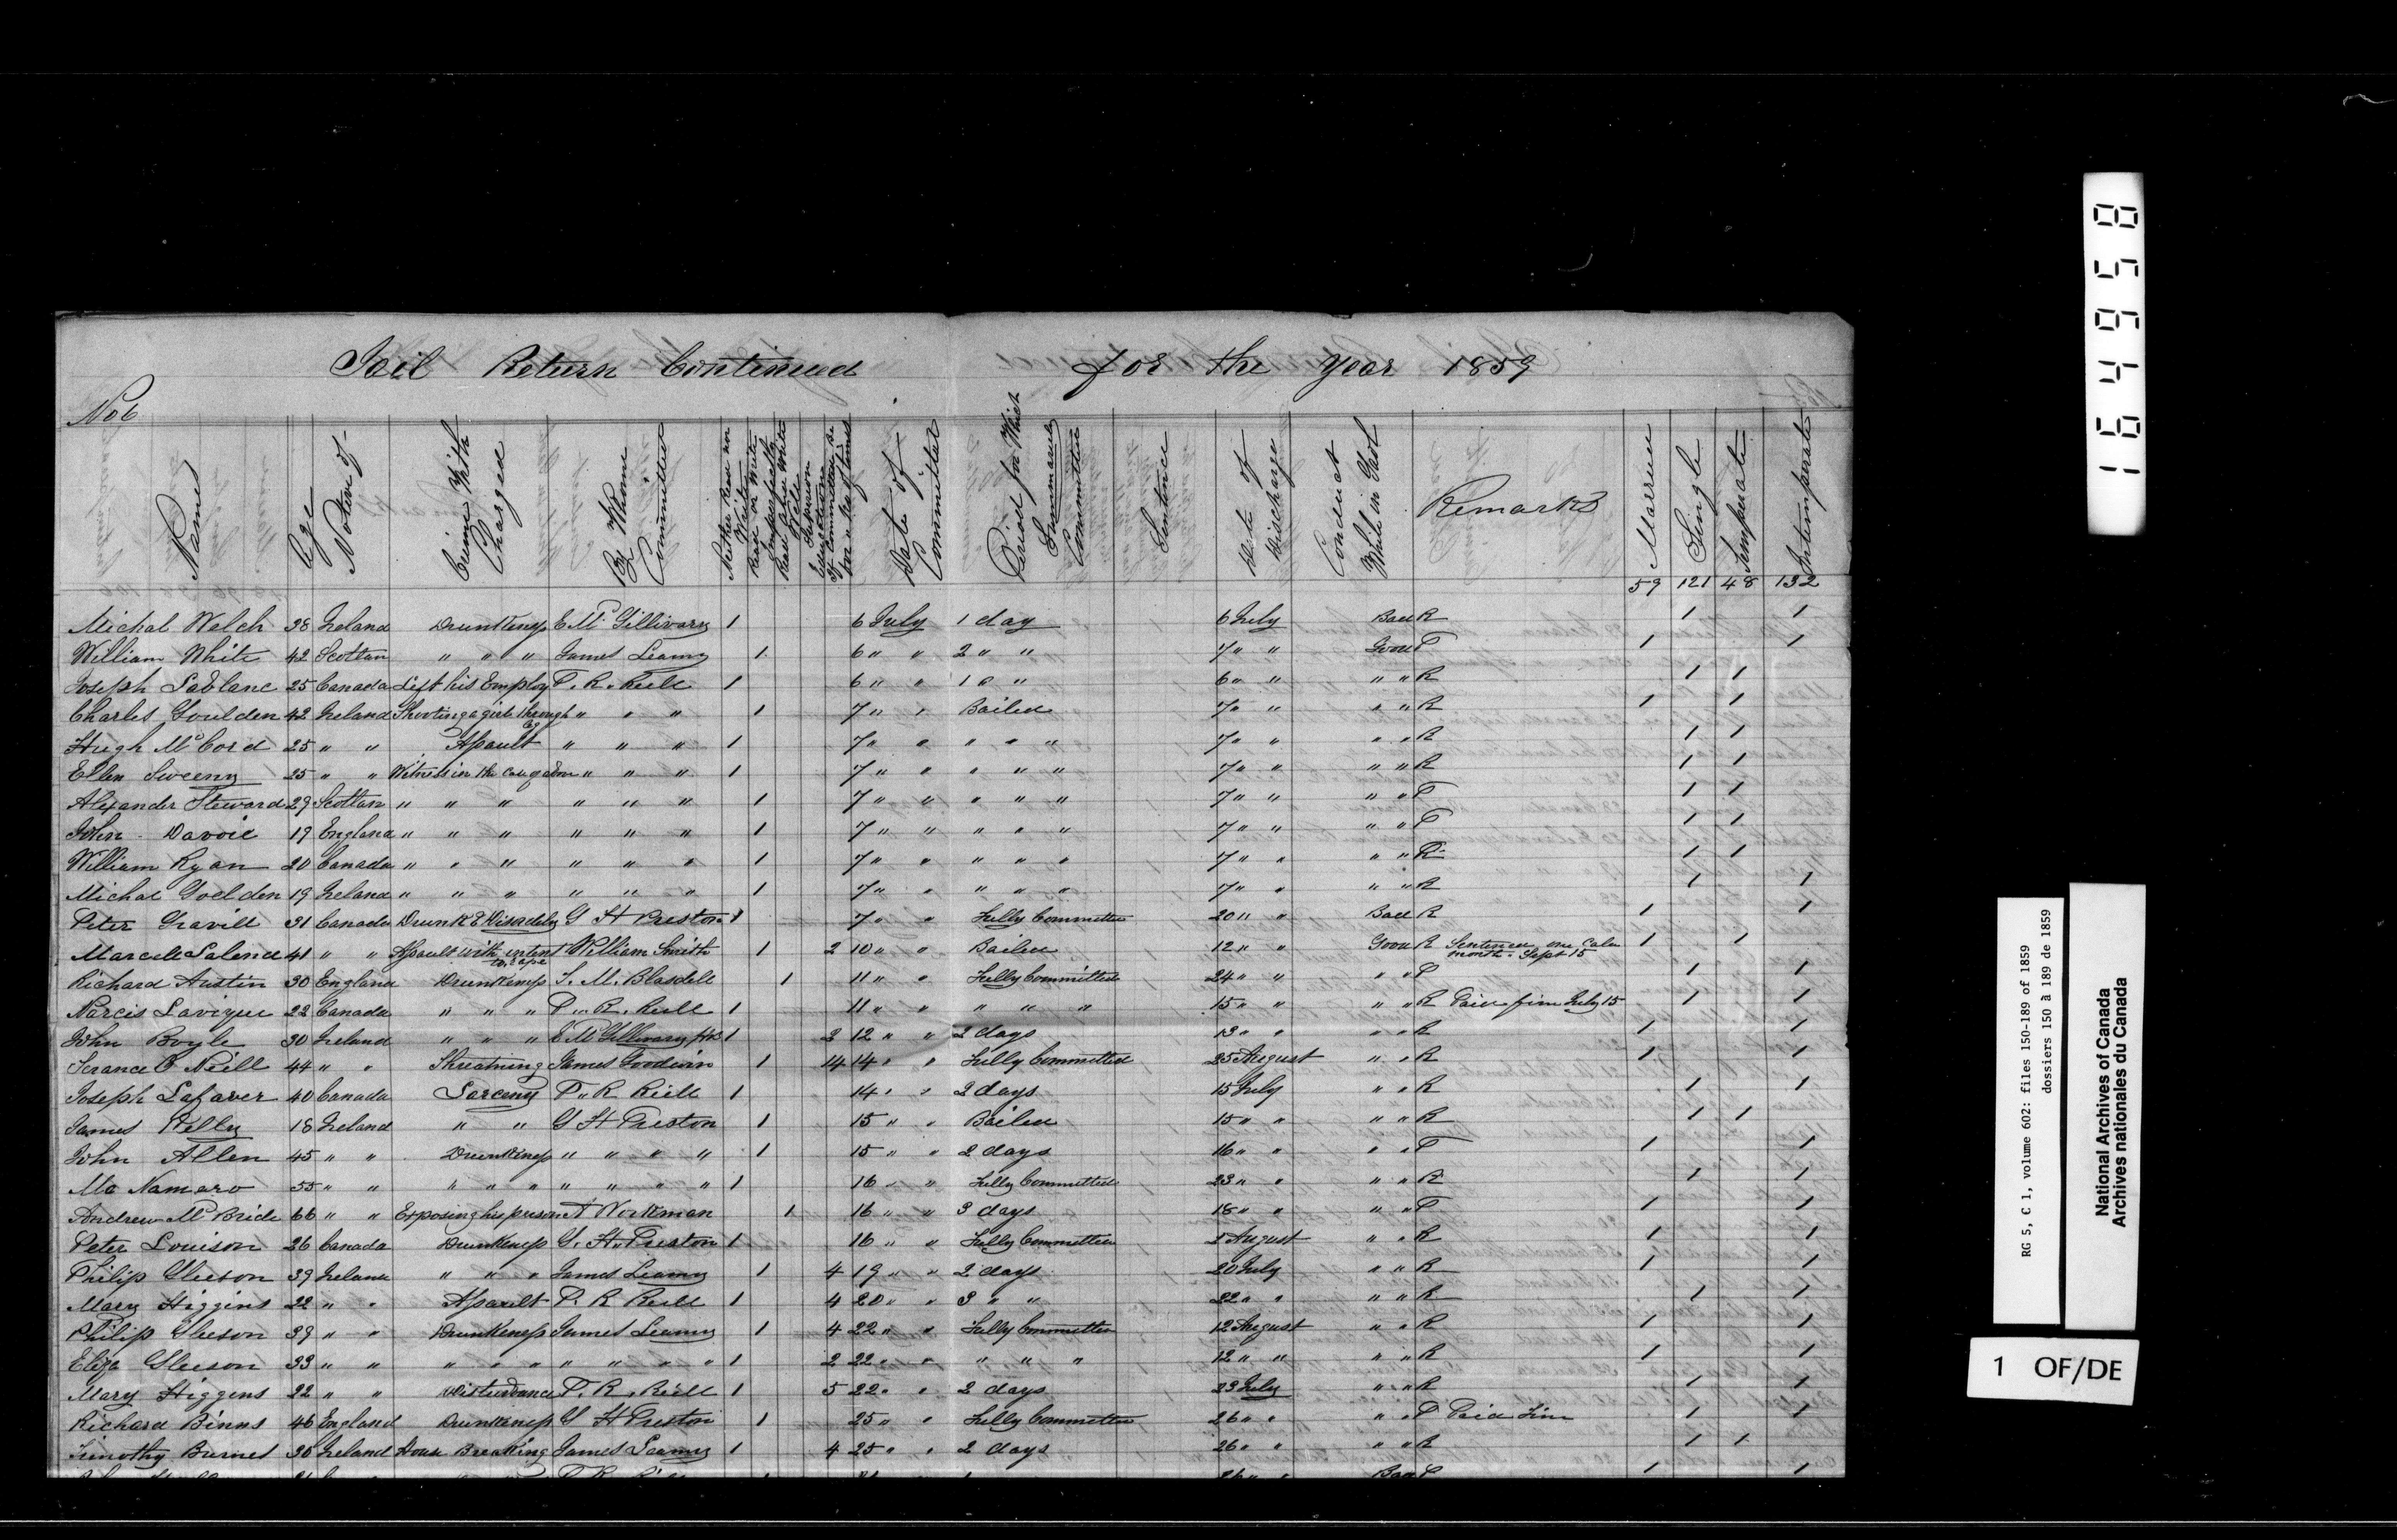 Jail Return Continued for the Year 1859
No 6
Name Age Native of Crime With Charged By Whome Committed Neither Read nor Write Read or Write Imperfectly Read and Write Well Superior Education If Committed Be fore No of times Date of Committal Period for Which Summarily Committed Sentence Date of Discharge Conduct While in Gaol Remarks Married Single Temperate Intemperate
59 121 48 132
Michal Welch 38 Ireland Drunkeness E Mc Gillivary 1 6 July 1 day 6 July Bad R 1 1
William White 42 Scotlan " " " James Leamy 1 6 " " 2 " " 7 " " Good P 1 1
Joseph Lablanc 25 Canada Left his Employ P. R. Reill 1 6 " " 1 " " 6 " " " " R 1 1
Charles Goulden 42 Ireland Shooting a girl through leg " " " 1 7 " " Bailed 7 " " " " R 1 1
Hugh McCord 25 " " Assault " " " 1 7 " " " " " 7 " " " " R 1 1
Ellen Sweeny 25 " " Witness in the " " " 1 7 " " " " " 7 " " " " R 1 1
Alexander Steward 29 Scotlan " " " " " " 1 7 " " " " " 7 " " " " P 1 1
John Davoie 19 England " " " " " " 1 7 " " " " " 7 " " " " P 1 1
William Ryan 20 Canada " " " " " " 1 7 " " " " " 7 " " " " R 1 1
Michal Goelden 19 Ireland " " " " " " 1 7 " " " " " 7 " " " " R 1 1
Peter Gravill 31 Canada Drunk & Disordely G H Preston 1 7 " " Fully Committed 20 " " Bad R 1 1
Marcell Salend 41 " " Assault with intent to rape William Smith 1 2 10 " " Bailed 12 " " Good R Sentenced one Calen month Sept 15 1 1
Richard Austin 30 England Drunkeness S. M. Blasdell 1 11 " " Fully Committed 24 " " " " P 1 1
Narcis Lavique 22 Canada " " " P. R. Reill 1 11 " " " " " 15 " " " " R Paid fine July 15 1 1
John Boyle 30 Ireland " " " E Mc Gillivary 1 2 12 " " 2 days 13 " " " " R 1 1
Terance O Neill 44 " " Threatning James Goodwin 1 14 14 " " Fully Committed 25 August " " R 1 1
Joseph Lafaver 40 Canada Larceny P. R Reill 1 14 " " 2 days 15 July " " R 1 1
James Kelly 18 Ireland " " G H Preston 1 15 " " Bailed 15 " " " " R 1 1
John Allen 45 " " Drunkeness " " " " 1 15 " " 2 days 16 " " " " P 1 1
Mc Namaro 55 " " " " " " " " " 1 16 " " Fully Committed 23 " " " " R 1 1
Andrew McBride 66 " " Exposing his person A Workman 1 16 " " 3 days 18 " " " " P 1 1
Peter Louison 26 Canada Drunkeness G. H. Preston 1 16 " " Fully Committed August " " R 1 1
Philip Gleeson 39 Ireland " " " James Leamy 1 4 19 " " 2 days 20 July " " R 1 1
Mary Higgins 22 " " Assault P. R Reill 1 4 20 " " 3 " " 22 " " " " R 1 1
Philip Gleeson 39 " " Drunkeness James Leamy 1 4 22 " " Fully Committed 12 August " " R 1 1
Eliza Gleeson 33 " " " " " " " " " 1 2 22 " " " " " 12 " " " " R 1 1
Mary Higgens 22 " " Disturbance P. R. Reill 1 5 22 " " 2 days 23 July " " R 1 1
Richard Binns 46 England Drunkeness G H Preston 1 25 " " Fully Committed 26 " " " " P Paid Fine 1 1
Timothy Burned 36 Ireland House Breaking James Leamy 1 4 25 " " 2 days 26 " " " " R 1 1
164958
RG 5, C 1, volume 602: files 150-189 of 1859
dossiers 150 à 189 de 1859
National Archives of Canada
Archives nationales du Canada
1 OF/DE